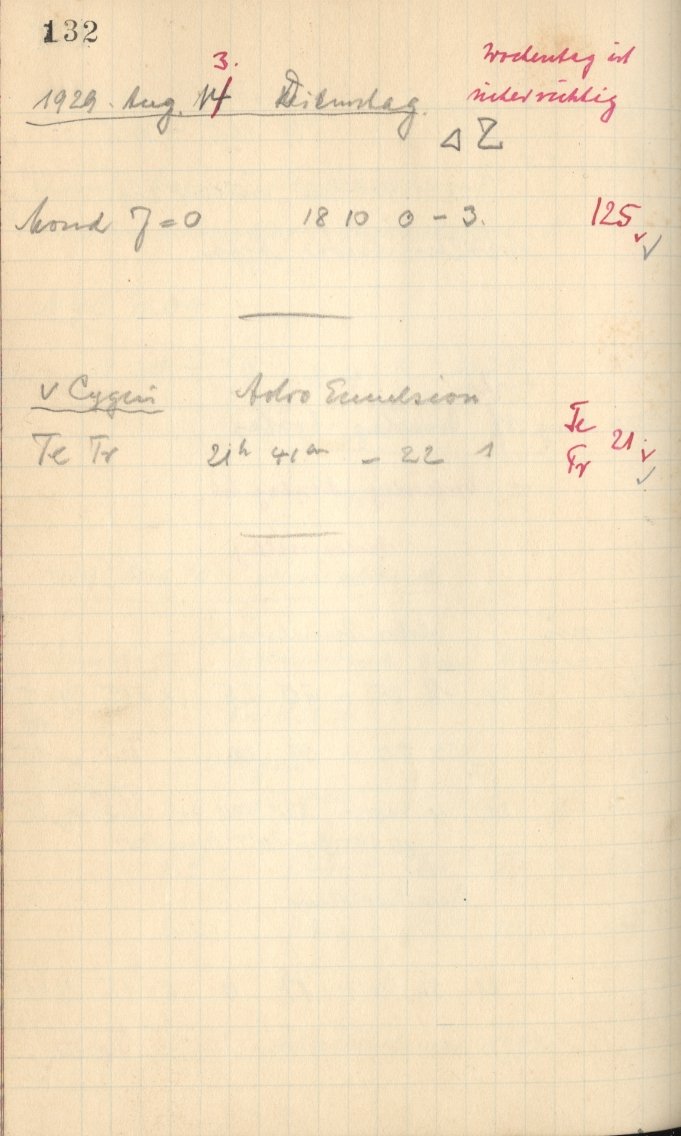 132
3.
1929. Aug. 14 Dienstag.
Wochentag ist
sicher richtig
Δ Z
Mond J = 0 18 10 0 - 3. 125
v Cygni Astro Emulsion
Te Tr 21h 41m - 22 1
Te
Tr 21.